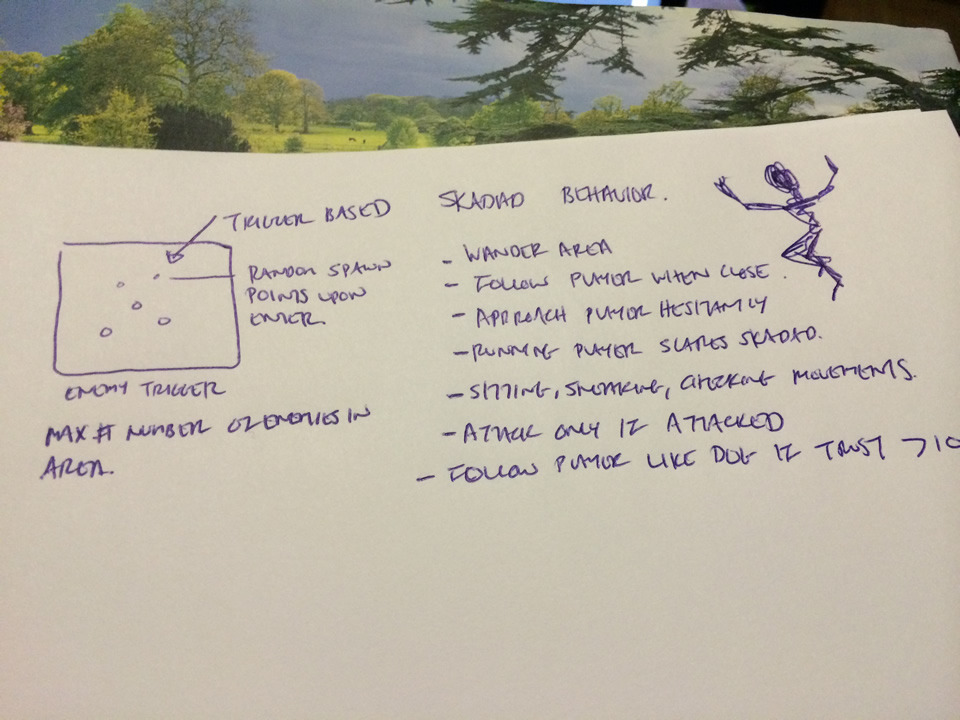 TRIGGER BASED
RANDOM SPAWN
POINTS UPON
ENTER.
ENEMY TRIGGER
MAX # NUMBER OF ENEMIES IN
AREA.
SKADAD BEHAVIOR.
- WANDER AREA
- FOLLOW PLAYER WHEN CLOSE.
- APPROACH PLAYER HESITANTLY
- RUNNING PLAYER SCARES SKADAD.
- SITTING, SNEAKING, CHECKING MOVEMENTS.
- ATTACK ONLY IF ATTACKED
- FOLLOW PLAYER LIKE DOG IF TRUST > 10